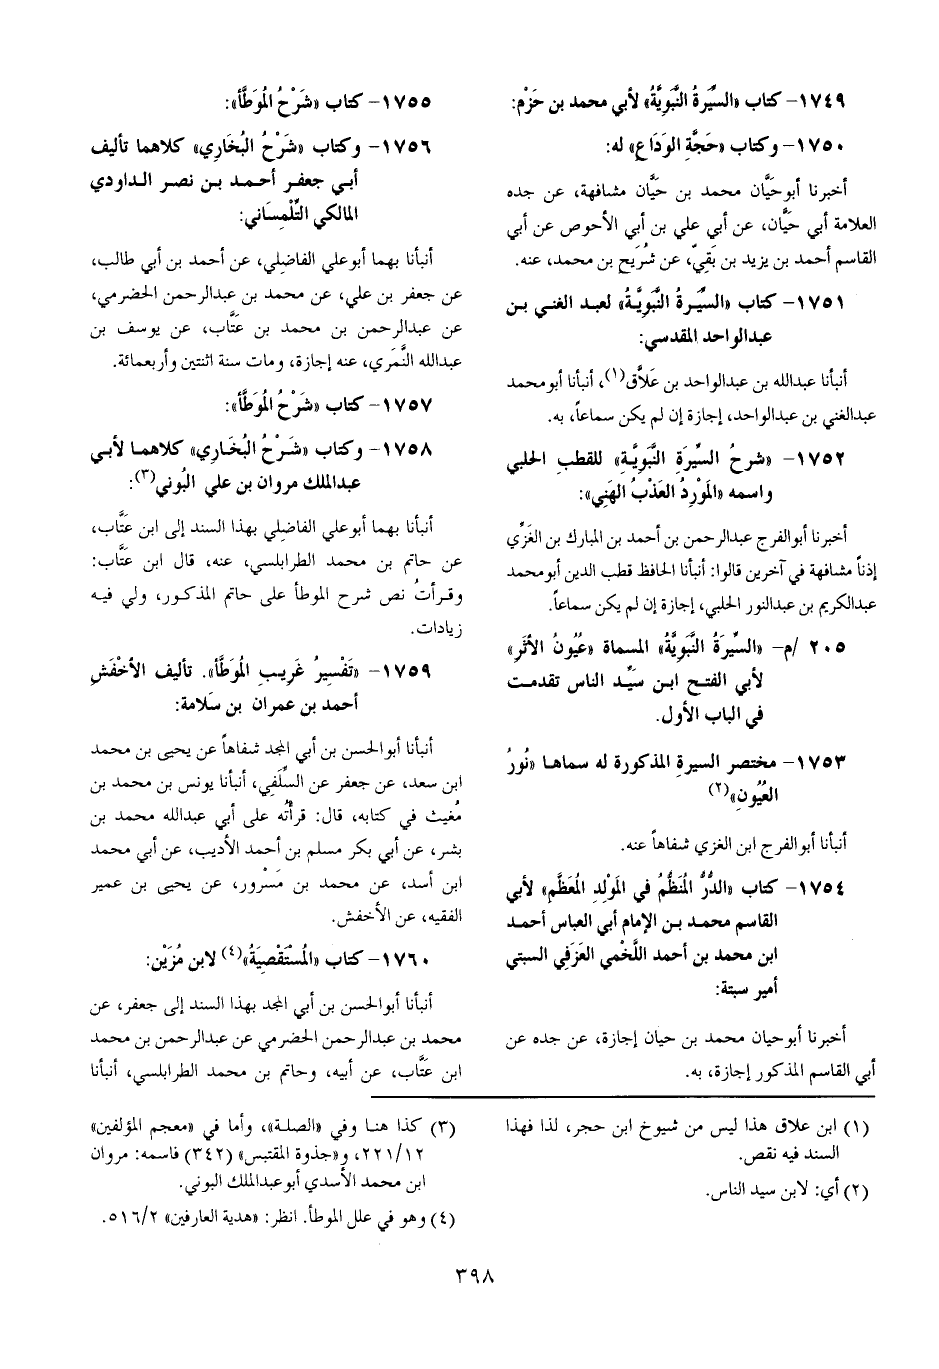 ١٧٤٩- كتاب «السِّيرَةُ النَّبَوِيَّةُ» لأبي محمد بن حَزْم:
١٧٥٠- وكتاب «حَجَّةِ الوَدَاعِ» له:
أخبرنا أبوحَيَّان محمد بن حَيَّان مشافهة، عن جده
العلامة أبي حَيَّان، عن أبي علي بن أبي الأحوص عن أبي
القاسم أحمد بن يزيد بن بَقِيّ، عن شُرَيح بن محمد، عنه.
١٧٥١- كتاب «السِّيَرةُ النَّبَوِيَّةُ» لعبد الغني بن
عبدالواحد المقدسي:
أنبأنا عبدالله بن عبدالواحد بن عَلاَّق(١)، أنبأنا أبومحمد
عبدالغني بن عبدالواحد، إجازة إن لم يكن سماعاً، به.
١٧٥٢- «شرحُ السيِّرَةِ النَّبَوِيَّةِ» للقطب الحلبي
واسمه «المَوْرِدُ العَذْبُ الهَنِي»:
أخبرنا أبوالفرج عبدالرحمن بن أحمد بن المبارك بن الغَزِّي
إذناً مشافهة في آخرين قالوا: أنبأنا الحافظ قطب الدين أبومحمد
عبدالكريم بن عبدالنور الحلبي، إجازة إن لم يكن سماعاً.
٢٠٥ /م- «السِّيرَةُ النَّبَوِيَّةُ» المسماة «عُيُونُ الأثَرِ»
لأبي الفتح ابن سَيِّد الناس تقدمت
في الباب الأول.
١٧٥٣- مختصر السيرةِ المذكورة له سماها «نُورُ
العُيُونِ»(٢)
أنبأنا أبوالفرج ابن الغزي شفاهاً عنه.
١٧٥٤- كتاب «الدُّرُّ المُنَظَّمُ في المَوْلِدِ المُعَظَّمِ» لأبي
القاسم محمد بن الإمام أبي العباس أحمد
ابن محمد بن أحمد اللَّخْمي العَزَفِي السبتي
أمير سبتة:
أخبرنا أبوحيان محمد بن حيان إجازة، عن جده عن
أبي القاسم المذكور إجازة، به.
١٧٥٥- كتاب «شَرْحُ المُوَطَّأ»:
١٧٥٦- وكتاب «شَرْحُ البُخَارِي» كلاهما تأليف
أبي جعفر أحمد بن نصر الداودي
المالكي التِّلْمِسَاني:
أنبأنا بهما أبوعلي الفاضلِي، عن أحمد بن أبي طالب،
عن جعفر بن علي، عن محمد بن عبدالرحمن الحضرمي،
عن عبدالرحمن بن محمد بن عَتَّاب، عن يوسف بن
عبدالله النَّمَري، عنه إجازة، ومات سنة اثنتين وأربعمائة.
١٧٥٧- كتاب «شَرْحُ المُوَطَّأ»:
١٧٥٨- وكتاب «شَرْحُ البُخَارِي» كلاهما لأبي
عبدالملك مروان بن علي البُوني(٣):
أنبأنا بهما أبوعلي الفاضلي بهذا السند إلى ابن عَتَّاب،
عن حاتم بن محمد الطرابلسي، عنه، قال ابن عَتَّاب:
وقرأتُ نص شرح الموطأ على حاتم المذكور، ولي فيه
زيادات.
١٧٥٩- «تَفْسِيرُ غَرِيبِ المُوَطَّأ». تأليف الأخْفَشِ
أحمد بن عمران بن سَلاَمة:
أنبأنا أبوالحسن بن أبي المجد شفاهاً عن يحيى بن محمد
ابن سعد، عن جعفر عن السِّلَفي، أنبأنا يونس بن محمد بن
مُغيث في كتابه، قال: قرأتُه على أبي عبدالله محمد بن
بشر، عن أبي بكر مسلم بن أحمد الأديب، عن أبي محمد
ابن أسد، عن محمد بن مَسْرور، عن يحيى بن عمير
الفقيه، عن الأخفش.
١٧٦٠- كتاب «المُسْتَقْصِيَةُ»(٤) لابن مُزَيْن:
أنبأنا أبوالحسن بن أبي المجد بهذا السند إلى جعفر، عن
محمد بن عبدالرحمن الحضرمي عن عبدالرحمن بن محمد
ابن عَتَّاب، عن أبيه، وحاتم بن محمد الطرابلسي، أنبأنا
(١) ابن علاق هذا ليس من شيوخ ابن حجر، لذا فهذا
السند فيه نقص.
(٢) أي: لابن سيد الناس.
(٣) كذا هنا وفي «الصلة»، وأما في «معجم المؤلفين»
٢٢١/١٢، و«جذوة المقتبس» (٣٤٢) فاسمه: مروان
ابن محمد الأسدي أبوعبدالملك البوني.
(٤) وهو في علل الموطأ. انظر: «هدية العارفين» ٥١٦/٢.
٣٩٨